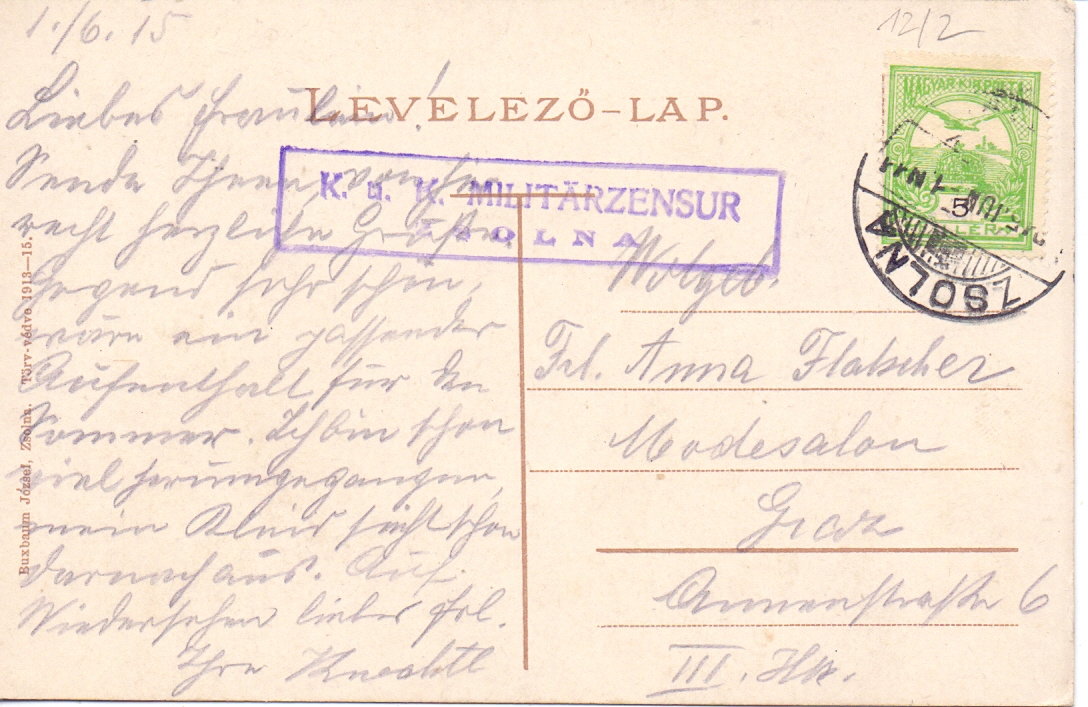 1./6. 15
12/2
LEVELEZŐ-LAP.
Liebes Fräulein!
Sende Ihnen von hier
recht herzliche Grüße.
Gegend sehr schön,
wäre ein passender
Aufenthalt für den
Sommer. Ich bin schon
viel herumgegangen,
mein Kleid sieht schon
darnach aus. Auf
Wiedersehen liebes Frl.
Ihre
K. u. K. MILITÄRZENSUR
ZSOLNA
MAGYAR KIR. POSTA
5
FILLÉR
ZSOLNA
Wolgeb.
Frl. Anna Flatscher
Modesalon
Graz
Annenstraße 6
III.
Buxbaum József, Zsolna. Törv-védve 1913-15.